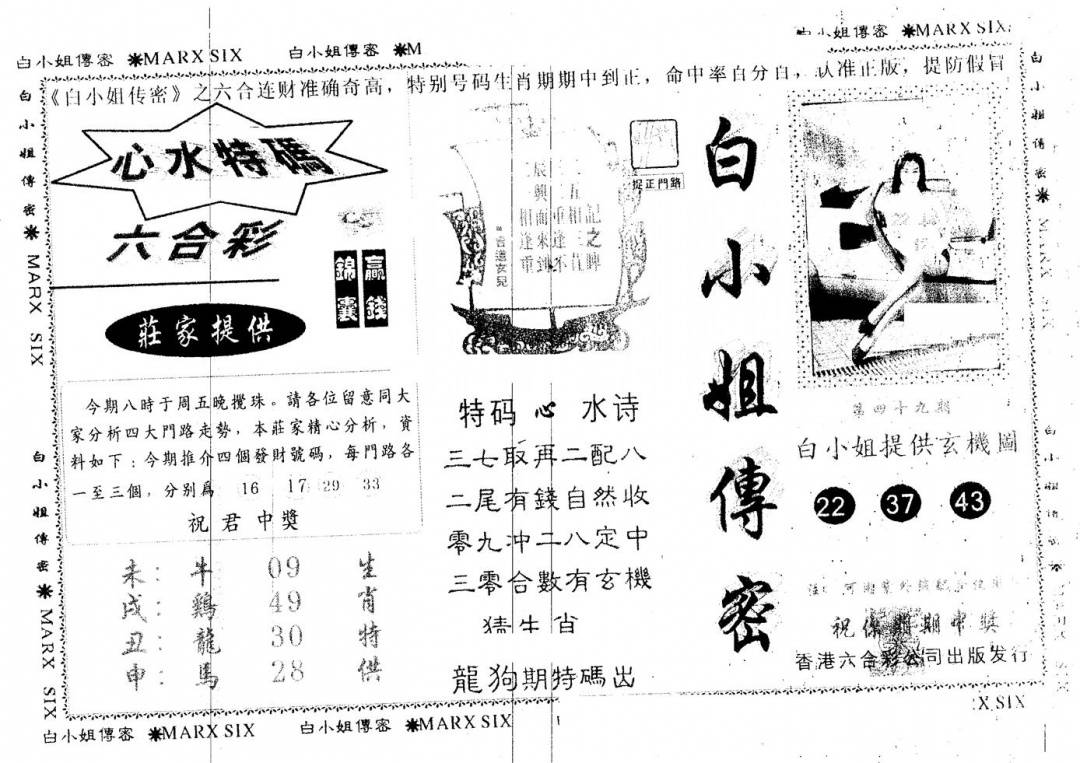 白小姐傳密 ✱MARX SIX 白小姐傳密 ✱M
白小姐傳密 ✱MARX SIX
《白小姐传密》之六合连财准确奇高，特别号码生肖期期中到正，命中率百分百，认准正版，提防假冒
白小姐傳密✱MARX SIX
白小姐傳密✱MARX SIX
心水特碼
六合彩
贏錢
錦囊
莊家提供
今期八時于周五晚攪珠。請各位留意同大
家分析四大門路走勢，本莊家精心分析，資
料如下：今期推介四個發財號碼，每門路各
一至三個，分别爲 16 17 29 33
祝君中獎
未：牛 09 生
戌：鷄 49 肖
丑：龍 30 特
申：馬 28 供
捉正門路
特码心水诗
三七取再二配八
二尾有錢自然收
零九冲二八定中
三零合數有玄機
猜生肖
龍狗期特碼出
白小姐傳密
第四十九期
白小姐提供玄機圖
22 37 43
祝保期期中獎
香港六合彩公司出版发行
白小姐傳密✱MARX
X SIX
白小姐傳密 ✱MARX SIX 白小姐傳密 ✱MARX SIX